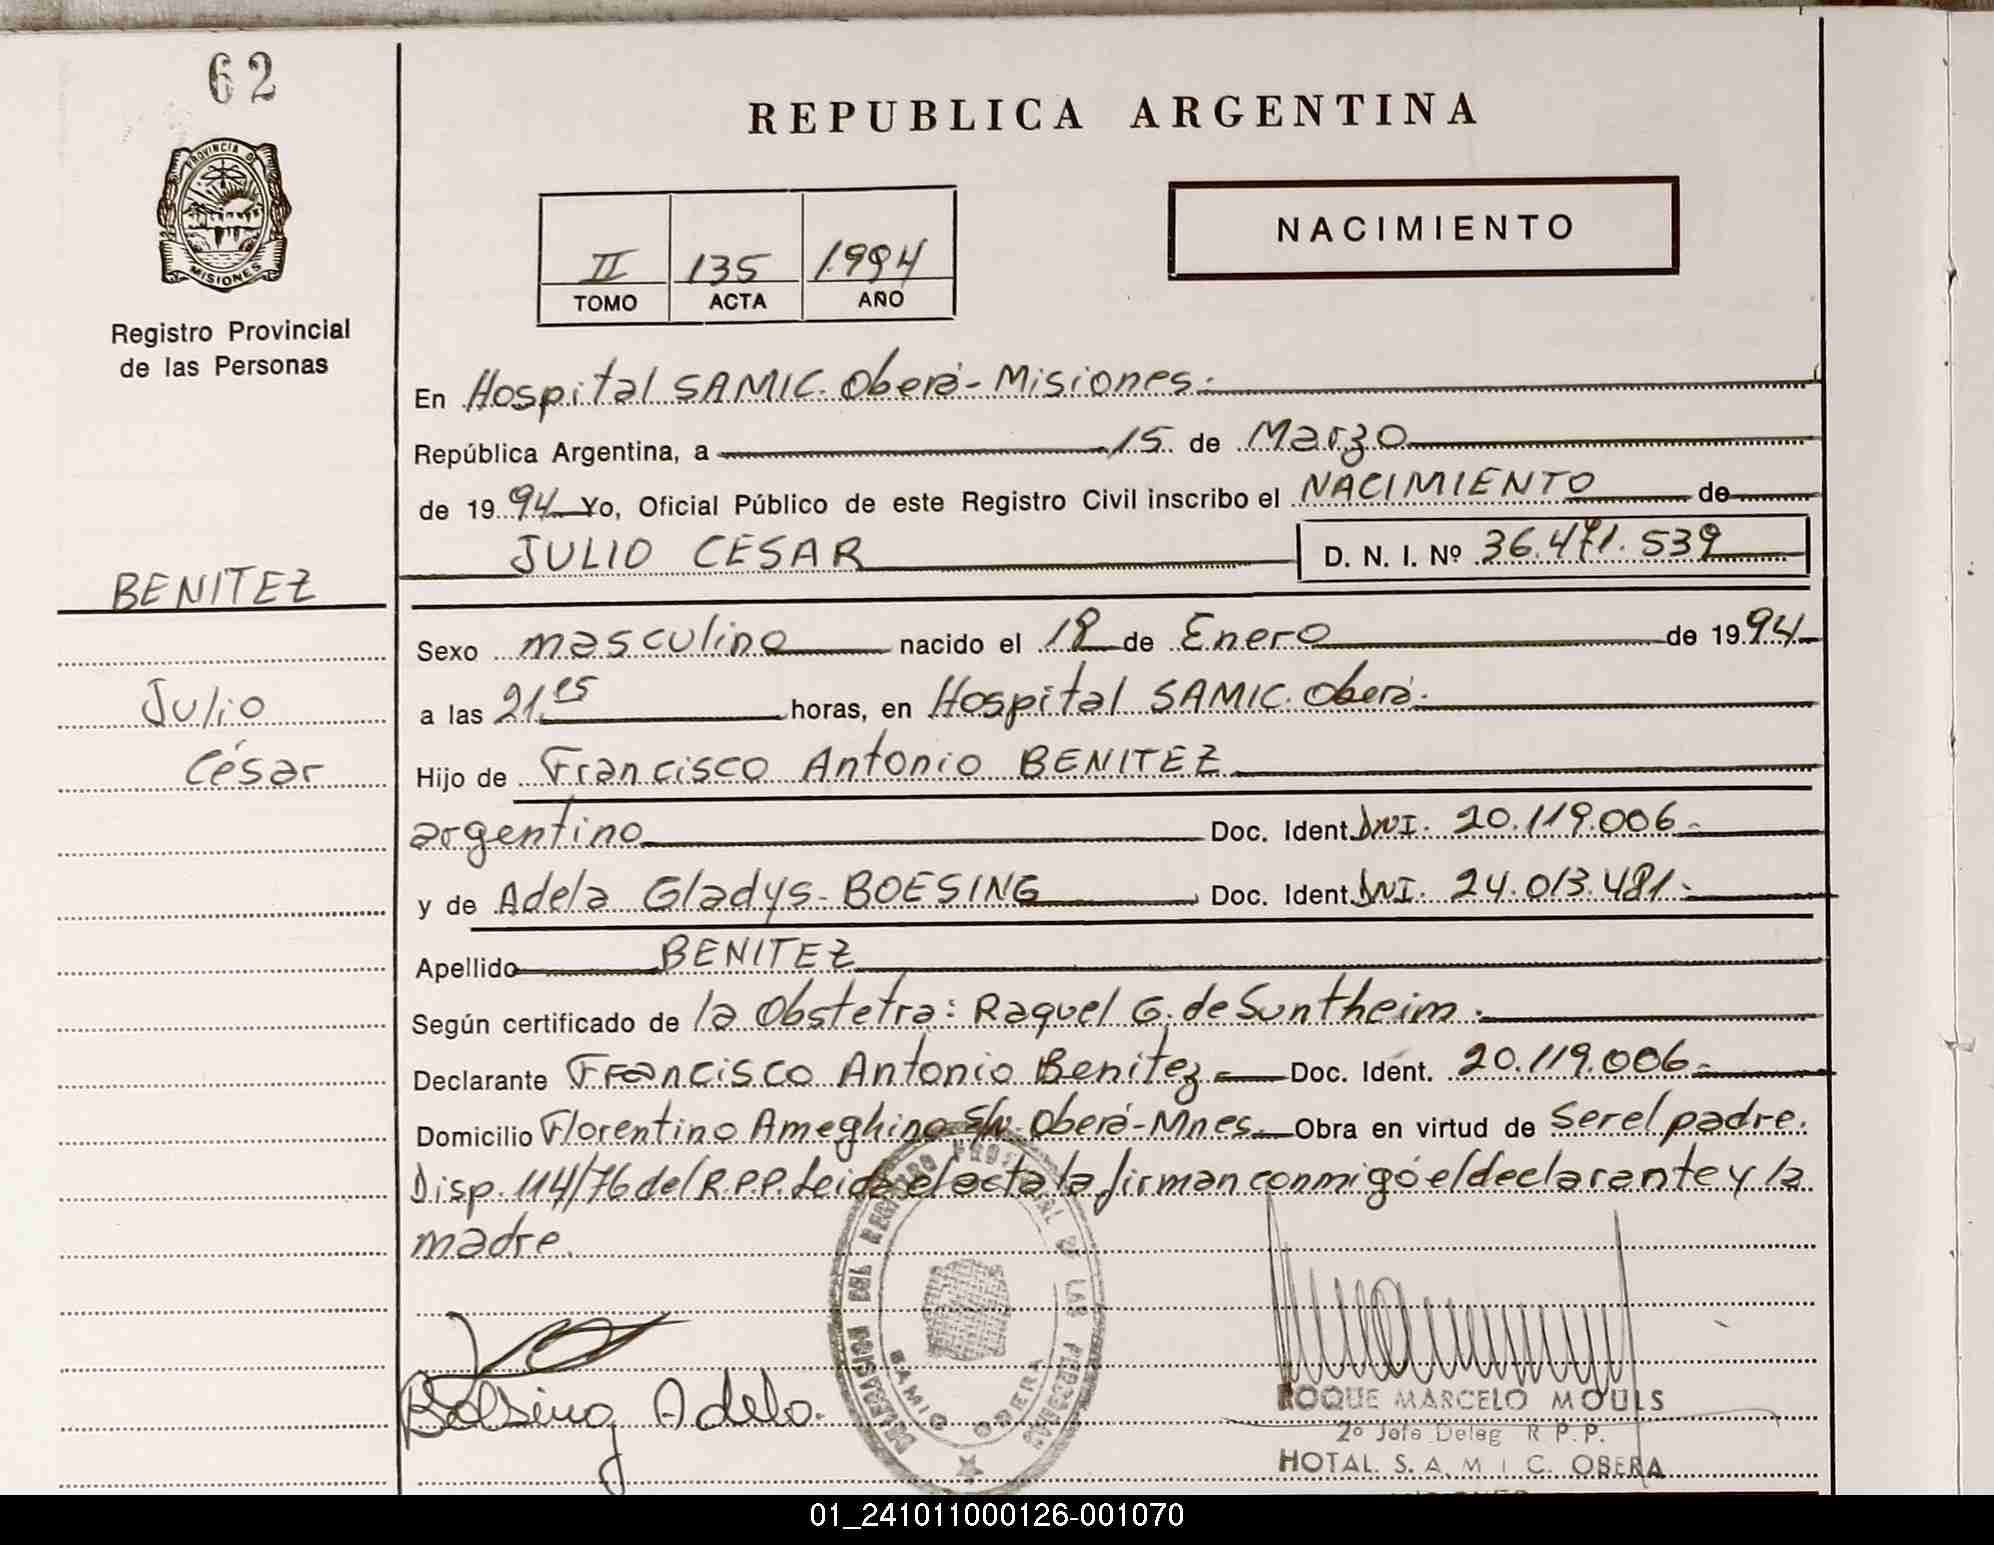 62
REPUBLICA ARGENTINA
PROVINCIA DE
MISIONES
Registro Provincial
de las Personas
II 135 1994
TOMO ACTA AÑO
NACIMIENTO
En Hospital SAMIC. Oberá-Misiones.
República Argentina, a 15 de Marzo
de 1994 Yo, Oficial Público de este Registro Civil inscribo el NACIMIENTO de
JULIO CESAR D. N. I. Nº 36.471.539
BENITEZ
Sexo masculino nacido el 18 de Enero de 1994
Julio
a las 21. horas, en Hospital SAMIC. Oberá.
César
Hijo de Francisco Antonio BENITEZ
argentino Doc. Ident. DNI. 20.119.006.
y de Adela Gladys-BOESING Doc. Ident. DNI. 24.013.481.
Apellido BENITEZ
Según certificado de la Obstetra: Raquel G. de Suntheim.
Declarante Francisco Antonio Benitez Doc. Ident. 20.119.006.
Domicilio Florentino Ameghino S/N. Oberá-Mnes. Obra en virtud de Ser el padre.
Disp. 114/76 del R.P.P. Leida el acta la firman conmigo el declarante y la
madre.
DELEGACION DEL REGISTRO PROVINCIAL DE LAS PERSONAS
SAMIC OBERA
Boesing Adela.
ROQUE MARCELO MOULS
2º Jefe Deleg R.P.P.
HOTAL. S.A.M.I.C. OBERA
01_241011000126-001070